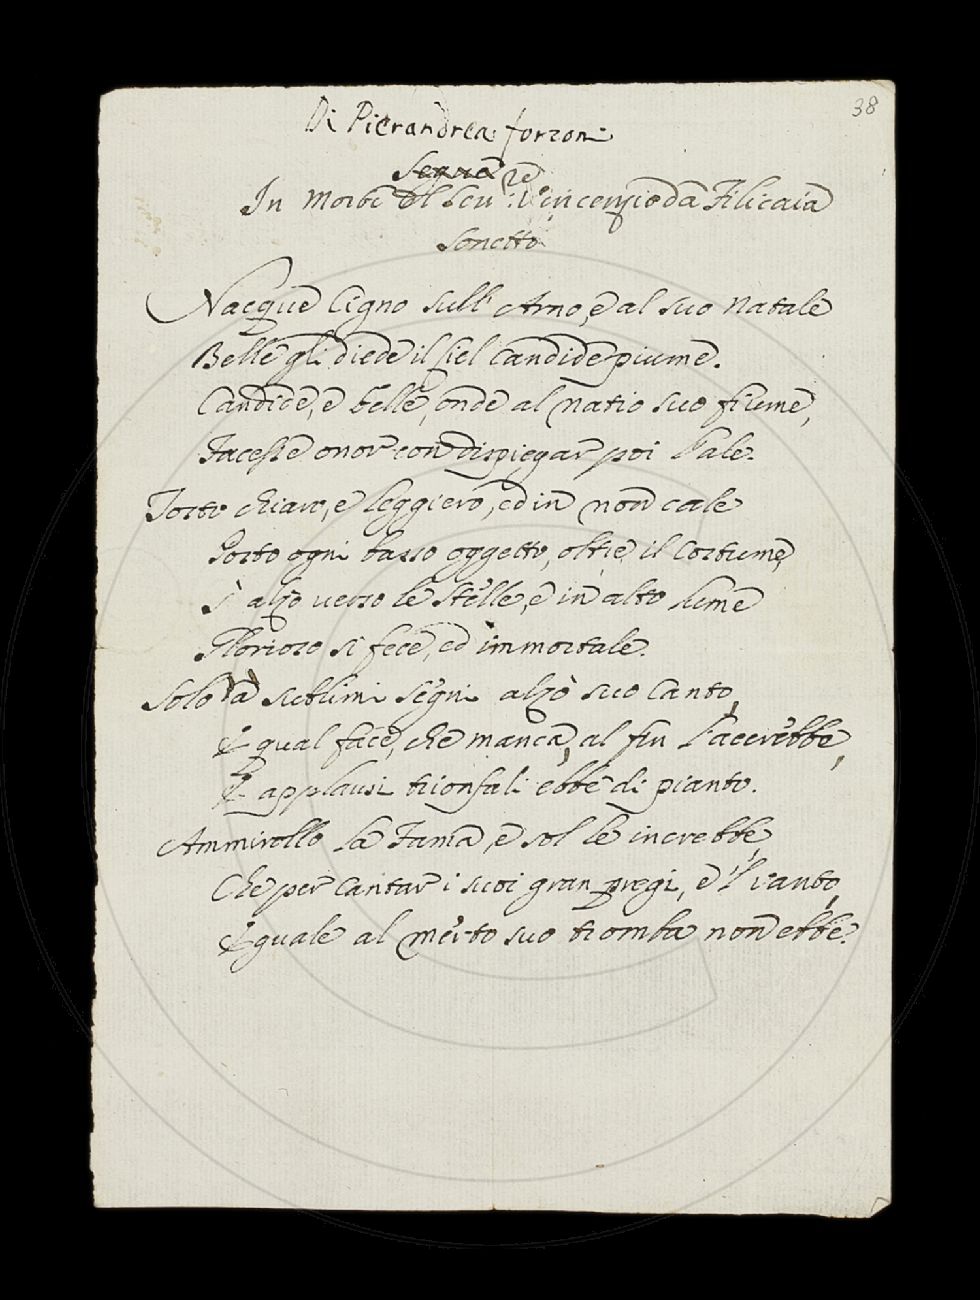 38
Di Pierandrea forzoni
In Morte del Sen:re Vincenzio da Filicaia
Sonetto
Nacque Cigno sull' Arno, e al suo Natale
Belle gli diede il Ciel candide piume.
Candide, e belle, onde al natio suo fiume,
Facesse onor con dispiegar poi l'ale.
Tosto chiaro, e leggiero, ed in non cale
Posto ogni basso oggetto, oltre il Costume,
S' alzò verso le Stelle, e in alto lume
Glorioso si fece, ed immortale.
Solo a sublimi segni alzò suo Canto,
E qual face, che manca, al fin l'accrebbe,
E applausi trionfali ebbe di pianto.
Ammirollo la Fama, e sol le increbbe,
Che per cantar i suoi gran pregi, e 'l vanto,
Eguale al merto suo tromba non ebbe.